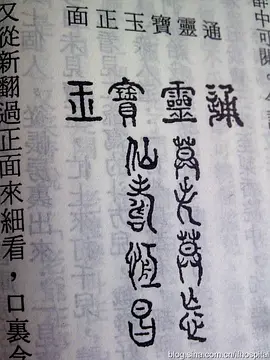 通靈寶玉正面
通靈寶玉
莫失莫忘
仙壽恆昌
又從新翻過正面來細看，口裏
blog.sina.com.cn/ilhospital